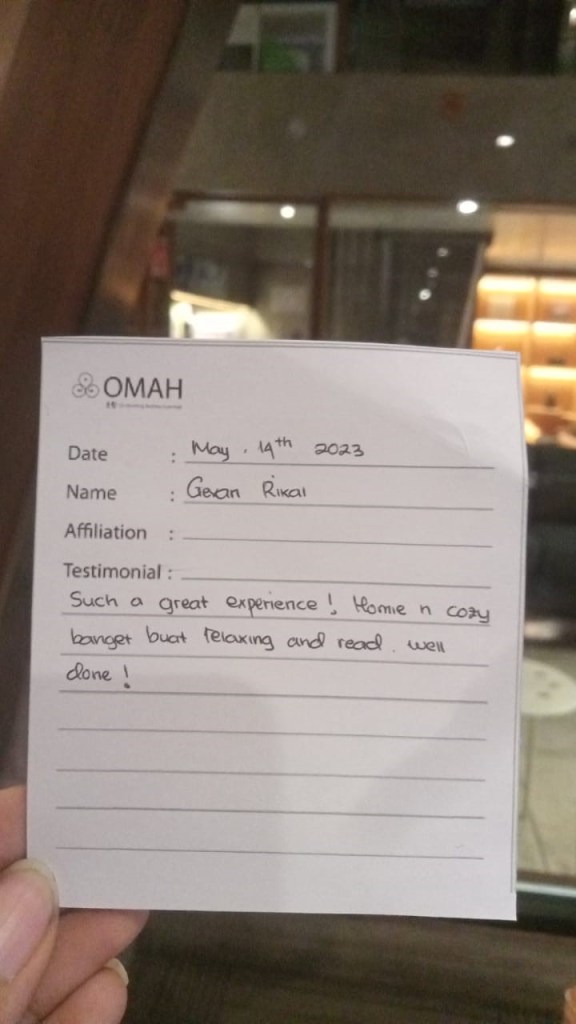 OMAH
Date : May, 14th 2023
Name : Gevan Rikal
Affiliation :
Testimonial :
Such a great experience! Home n cozy
banget buat relaxing and read. well
done!